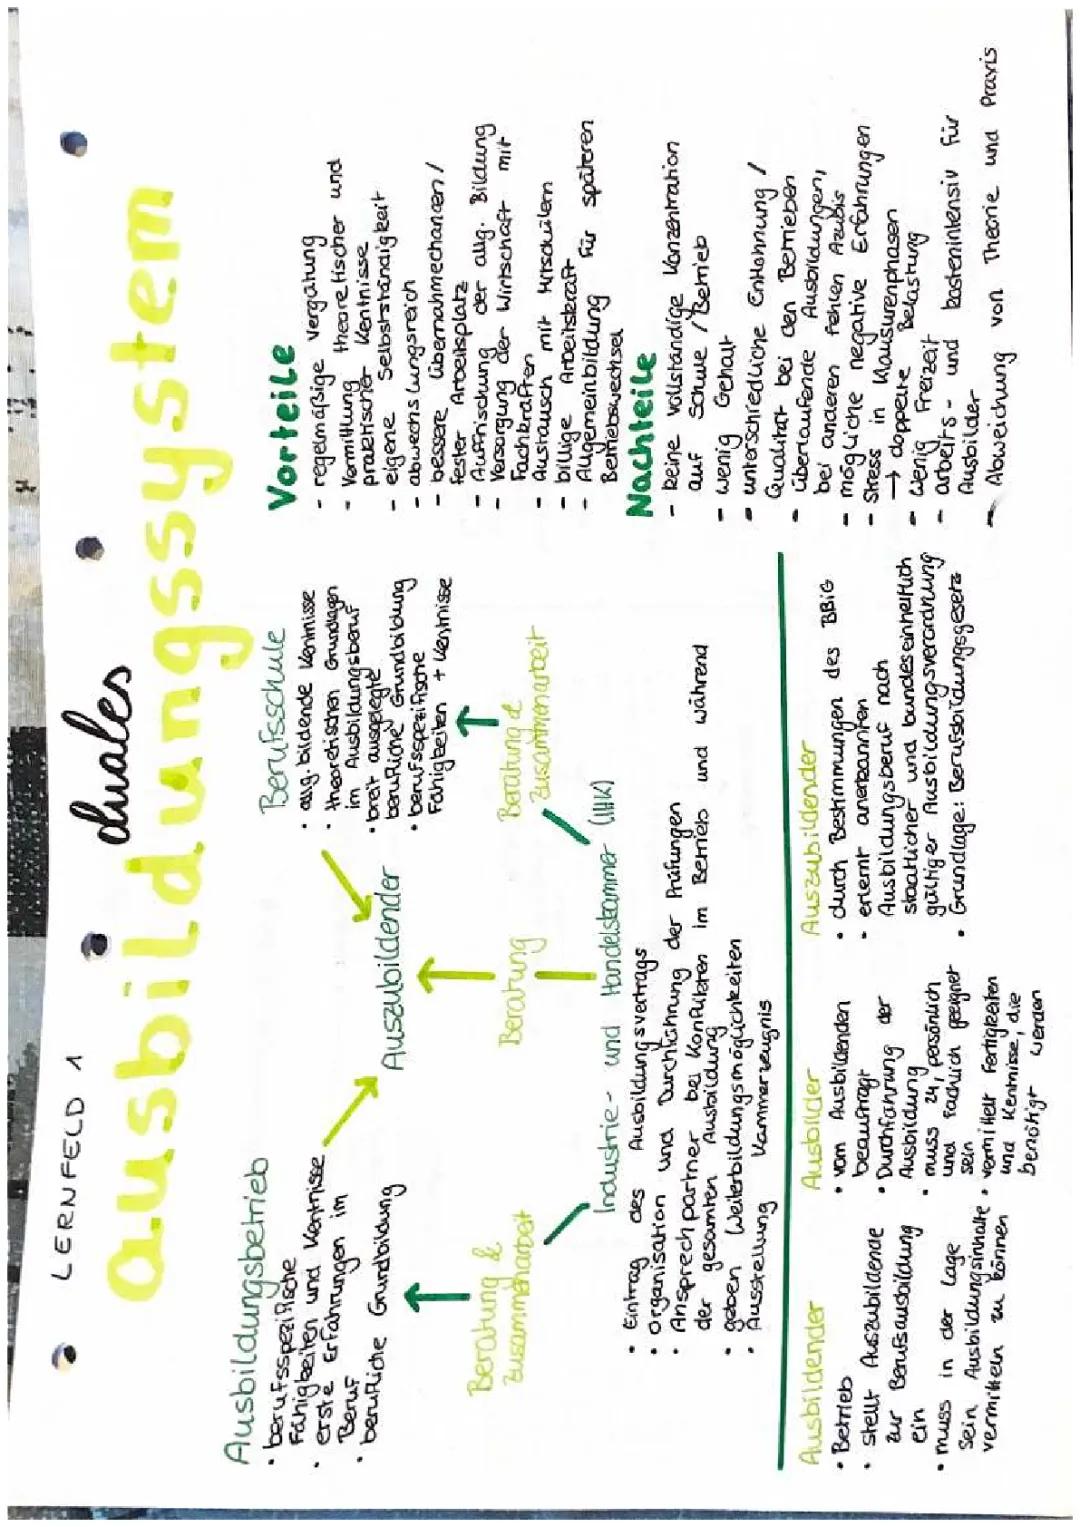 LERNFELD 1
duales
ausbildungssystem
Ausbildungsbetrieb
• berufsspezifische
Fähigkeiten und Kentnisse
• erste Erfahrungen im
Beruf
• berufliche Grundbildung
Auszubildender
Berufsschule
• allg. bildende Kentnisse
• theoretischen Grundlagen
im Ausbildungsberuf
• breit ausgelegte
berufliche Grundbildung
• berufsspezifische
Fähigkeiten + Kentnisse
Beratung &
Zusammenarbeit
Beratung
Beratung &
Zusammenarbeit
Industrie- und Handelskammer (IHK)
• Eintrag des Ausbildungsvertrags
• Organisation und Durchführung der Prüfungen
• Ansprechpartner bei Konflikten im Betrieb und während
der gesamten Ausbildung
• geben Weiterbildungsmöglichkeiten
• Ausstellung Kammerzeugnis
Vorteile
- regelmäßige Vergütung
- Vermittlung theoretischer und
praktischer Kentnisse
- eigene Selbstständigkeit
- abwechslungsreich
- bessere Übernahmechancen /
fester Arbeitsplatz
- Auffrischung der allg. Bildung
- Versorgung der Wirtschaft mit
Fachkräften
- Austausch mit Mitschülern
- billige Arbeitskraft
- Allgemeinbildung für späteren
Betriebswechsel
Nachteile
- keine vollständige Konzentration
auf Schule / Betrieb
- wenig Gehalt
- unterschiedliche Entlohnung /
Qualität bei den Betrieben
- überlaufende Ausbildungen,
bei anderen fehlen Azubis
- mögliche negative Erfahrungen
- Stress in Klausurenphasen
→ doppelte Belastung
- wenig Freizeit
- arbeits- und kostenintensiv für
Ausbilder
- Abweichung von Theorie und Praxis
Ausbildender
• Betrieb
• stellt Auszubildende
zur Berufsausbildung
ein
• muss in der Lage
sein Ausbildungsinhalte
vermitteln zu können
Ausbilder
• vom Ausbildenden
beauftragt
• Durchführung der
Ausbildung
• muss 24, persönlich
und fachlich geeignet
sein
• vermittelt Fertigkeiten
und Kentnisse, die
benötigt werden
Auszubildender
• durch Bestimmungen des BBiG
• erlernt anerkannten
Ausbildungsberuf nach
staatlicher und bundeseinheitlich
gültiger Ausbildungsverordnung
• Grundlage: Berufsbildungsgesetz